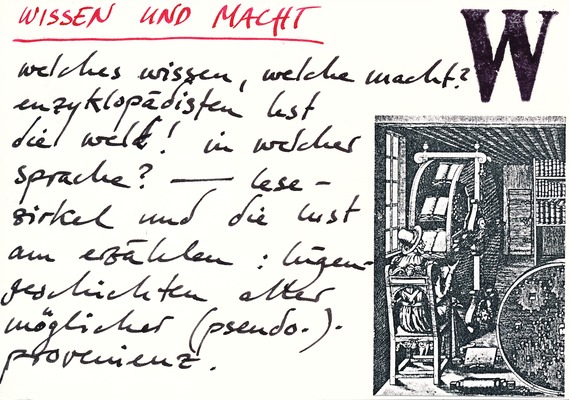 WISSEN UND MACHT
W
welches wissen, welche macht?
enzyklopädisten lest
die welt! in welcher
sprache? — lese-
zirkel und die lust
am erzählen : lügen-
geschichten aller
möglicher (pseudo-)-
provenienz.